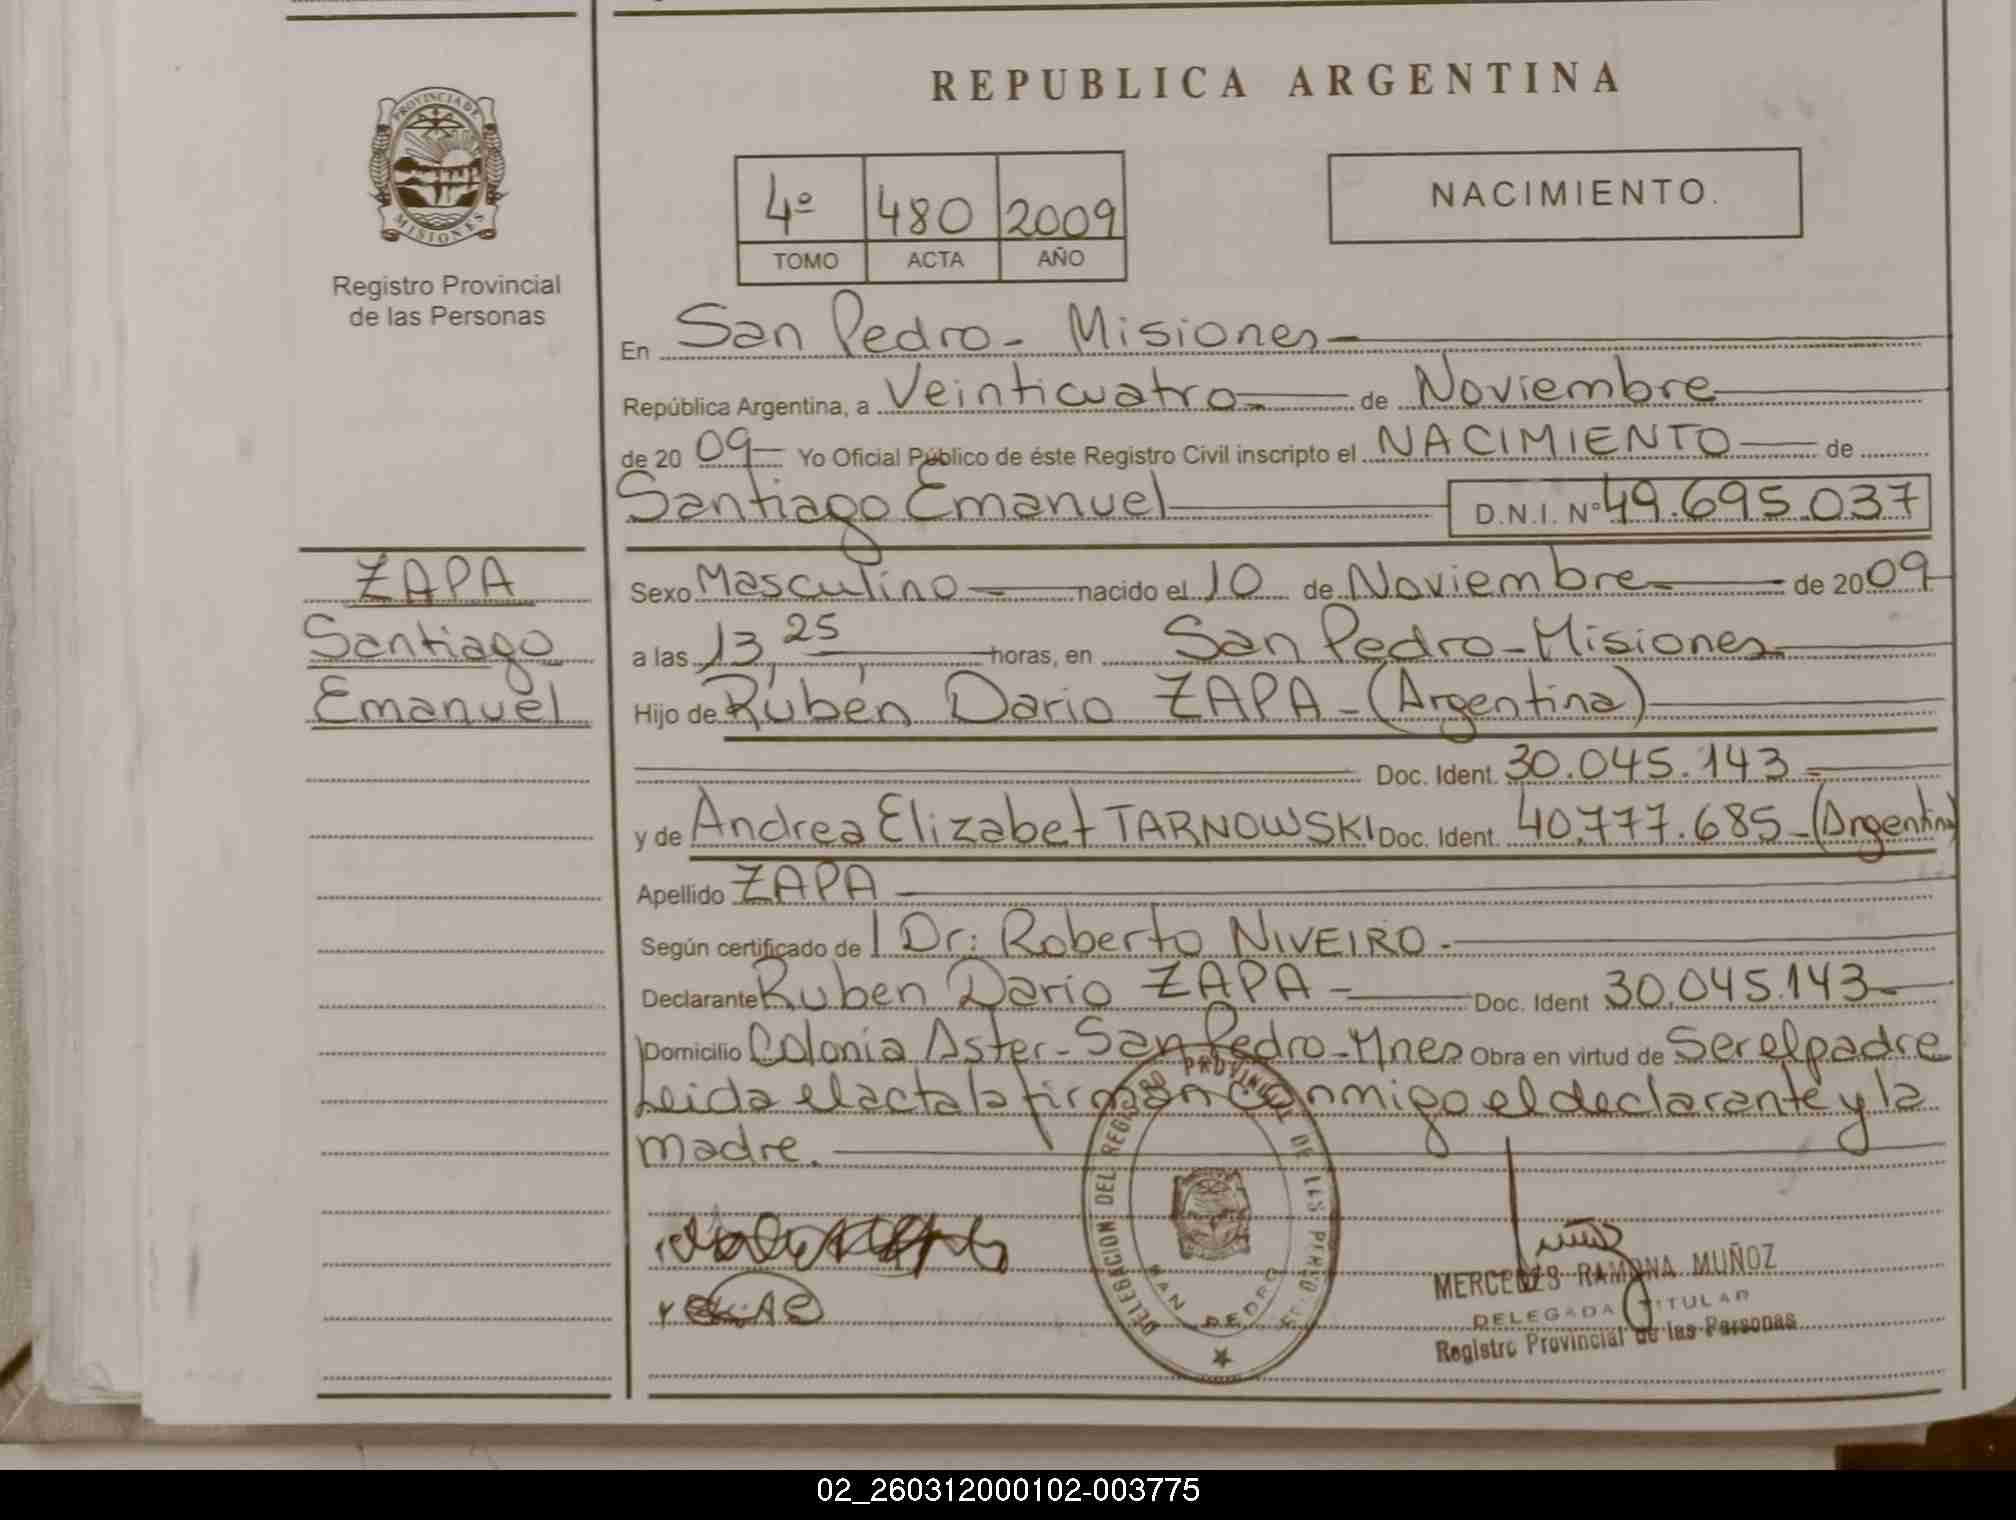 REPUBLICA ARGENTINA
PROVINCIA DE
MISIONES
Registro Provincial
de las Personas
4º 480 2009
TOMO ACTA AÑO
NACIMIENTO.
En San Pedro - Misiones
República Argentina, a Veinticuatro de Noviembre
de 20 09 Yo Oficial Público de éste Registro Civil inscripto el NACIMIENTO de
Santiago Emanuel D.N.I. Nº 49.695.037
ZAPA
Santiago
Emanuel
Sexo Masculino nacido el 10 de Noviembre de 2009
a las 13,25 horas, en San Pedro - Misiones
Hijo de Rubén Dario ZAPA - (Argentina)
Doc. Ident. 30.045.143
y de Andrea Elizabet TARNOWSKI Doc. Ident. 40.777.685 - (Argentina)
Apellido ZAPA
Según certificado de Dr: Roberto NIVEIRO.-
Declarante Ruben Dario ZAPA - Doc. Ident 30.045.143
Domicilio Colonia Aster - San Pedro - Mnes Obra en virtud de Ser el padre
Leida el acta la firman conmigo el declarante y la
madre.
DELEGACION DEL REGISTRO PROVINCIAL DE LAS PERSONAS
SAN PEDRO
MERCEDES RAMONA MUÑOZ
DELEGADA TITULAR
Registro Provincial de las Personas
02_260312000102-003775